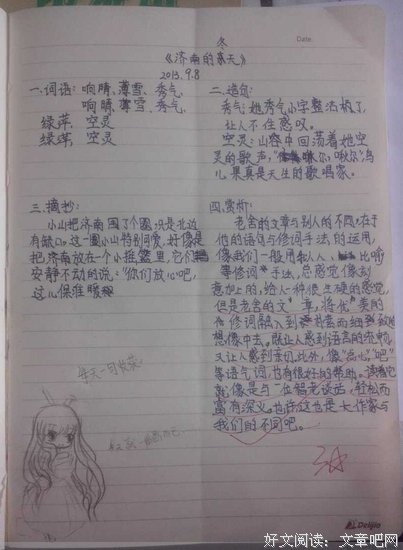 冬
Date.
《济南的春天》
2013.9.8
一.词语: 响晴、薄雪、秀气、
响晴、薄雪、秀气、
绿萍、空灵
绿萍、空灵
二.造句:
秀气:她秀气小字整洁极了,
让人不住感叹。
空灵:山谷中回荡着她空
灵的歌声,“啾尔,啾尔”鸟
儿果真是天生的歌唱家。
三.摘抄:
小山把济南围了个圈,只是北边
有缺口。这一圈小山特别可爱,好像是
把济南放在一个小摇篮里,它们
安静不动的说:“你们放心吧,
这儿保准暖和
四.赏析:
老舍的文章与别人的不同,在于
他的语句与修词手法,的运用,
像我们一般用拟人、比喻
等修词手法,总感觉像刻
意加上的,给人一种很生硬的感觉
但是老舍的文章,将优美的
修词融入到朴素而细致的
想像中去,既让人感到语言的
又让人感到亲切,此外,像“放心”“吧”
等语气词,也有很好的帮助。读着它
就像是与一位智老谈话,轻松而
富有深义。也许这也是大作家与
我们的不同吧。
Deli
好文阅读:文章吧网